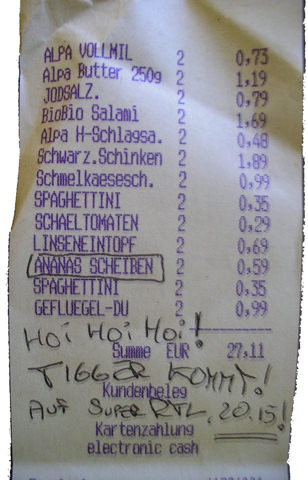 ALPA VOLLMIL 2 0,73
Alpa Butter 250g 2 1,19
JODSALZ. 2 0,79
BioBio Salami 2 1,69
Alpa H-Schlagsa. 2 0,48
Schwarz.Schinken 2 1,89
Schmelkaesesch. 2 0,99
SPAGHETTINI 2 0,35
SCHAELTOMATEN 2 0,29
LINSENEINTOPF 2 0,69
ANANAS SCHEIBEN 2 0,59
SPAGHETTINI 2 0,35
GEFLUEGEL-DU 2 0,99
HOI HOI HOI!
Summe EUR 27,11
TIGGER KOMMT!
Kundenbeleg
AUF SUPER RTL, 20.15!
Kartenzahlung
electronic cash